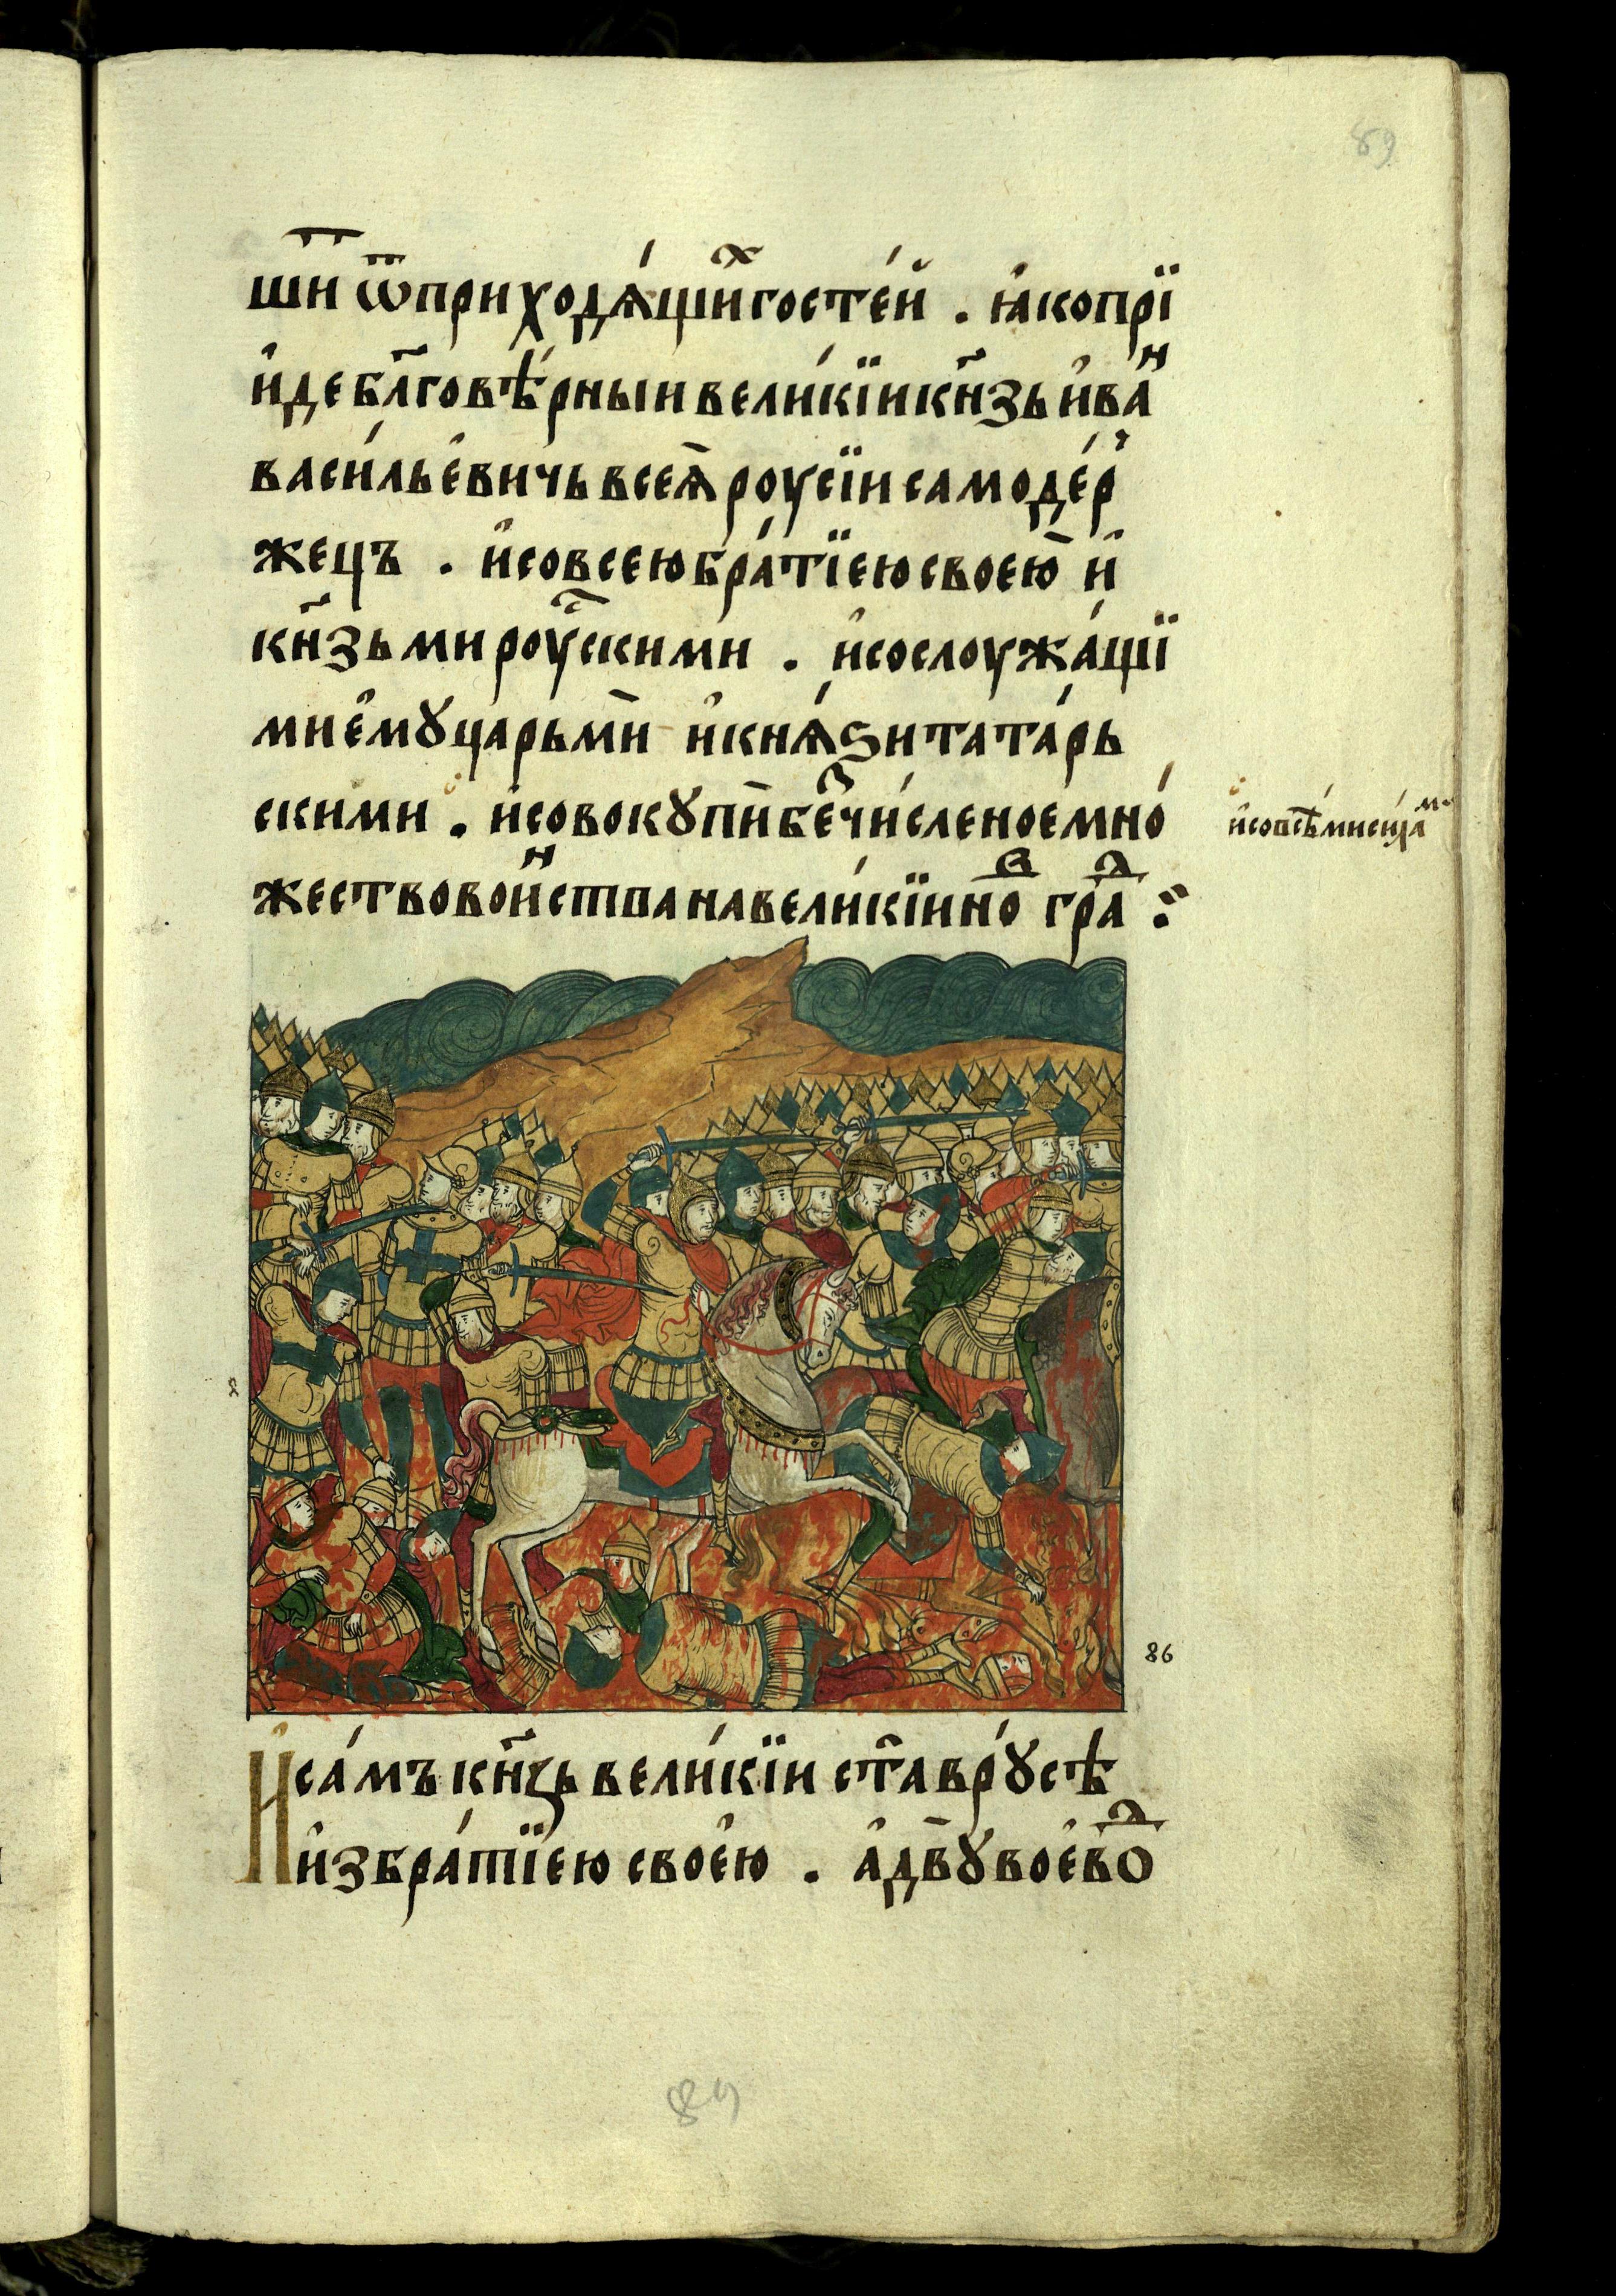 89
шн ѿприходѧ́щиⷯ госте́й . ꙗ҆копрїи
и҆де бл҃говѣ́рныи вели́кїи кн҃зь и҆ваⷩ҇
васи́льевичь всеѧ̀ роусїи самоде́р
жецъ . и҆совсею бра́тїею своею̀ и҆
кн҃зьми роу́скими . и҆сослоужа́щї
ми е҆мꙋ царьмѝ и҆кнѧ́ѕи тата́рь
скими . и҆совокꙋпѝ беⷥчи́сленое мно́
и҆совсѣ́ми си́лаⷨ
жество воиⷩ҇ства навели́кїи ноⷡ҇ граⷣ ⁘
86
И҆са́мъ кн҃ꙁь вели́кїи ста̀ врꙋ́сѣ
и҆збра́тїею своею . а҆двꙋ̀ воево̀ⷣ
89